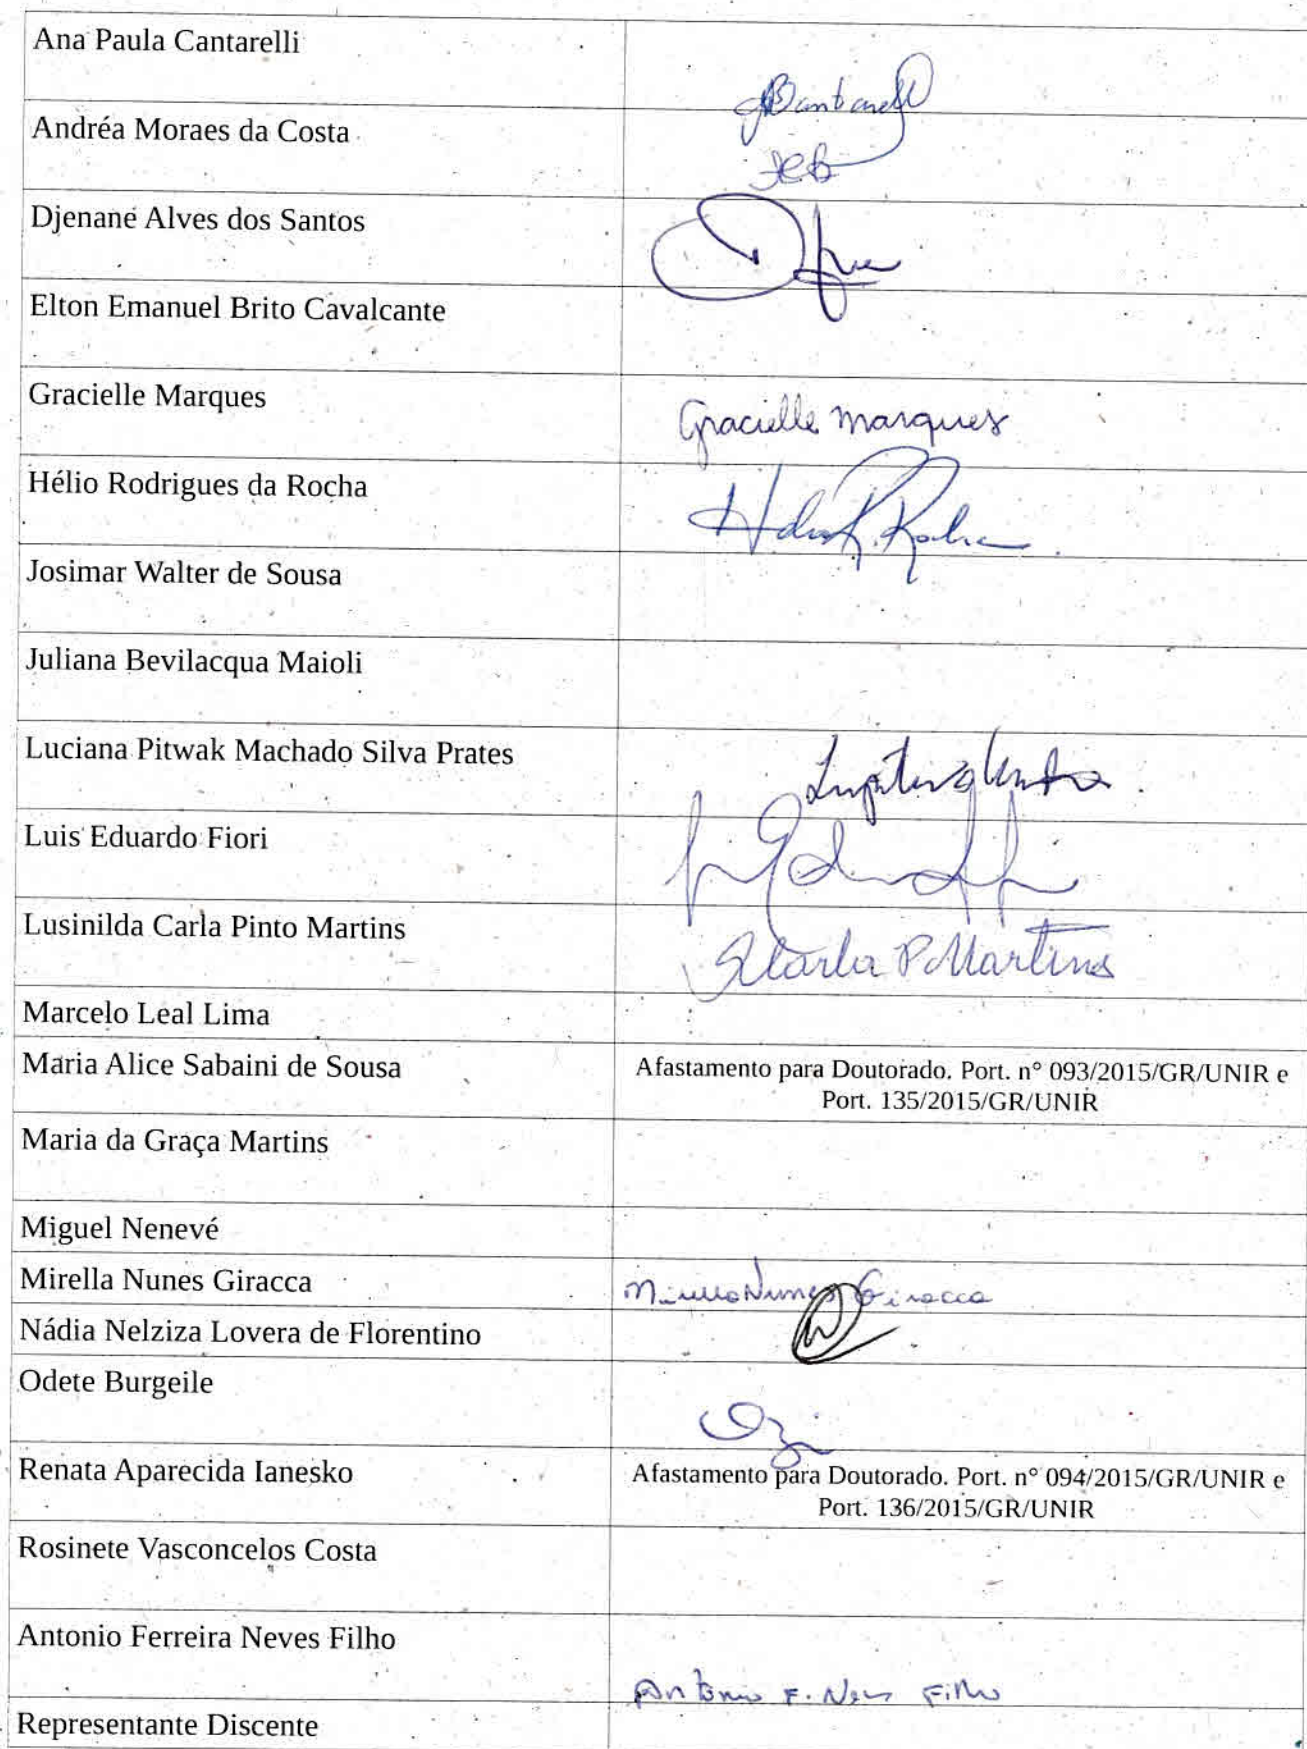 Ana Paula Cantarelli
Andréa Moraes da Costa
Djenane Alves dos Santos
Elton Emanuel Brito Cavalcante
Gracielle Marques
Gracielle Marques
Hélio Rodrigues da Rocha
Josimar Walter de Sousa
Juliana Bevilacqua Maioli
Luciana Pitwak Machado Silva Prates
Luis Eduardo Fiori
Lusinilda Carla Pinto Martins
Carla P Martins
Marcelo Leal Lima
Maria Alice Sabaini de Sousa
Afastamento para Doutorado. Port. nº 093/2015/GR/UNIR e
Port. 135/2015/GR/UNIR
Maria da Graça Martins
Miguel Nenevé
Mirella Nunes Giracca
Mirella Nunes Giracca
Nádia Nelziza Lovera de Florentino
Odete Burgeile
Renata Aparecida Ianesko
Afastamento para Doutorado. Port. nº 094/2015/GR/UNIR e
Port. 136/2015/GR/UNIR
Rosinete Vasconcelos Costa
Antonio Ferreira Neves Filho
Antonio F. Neves Filho
Representante Discente